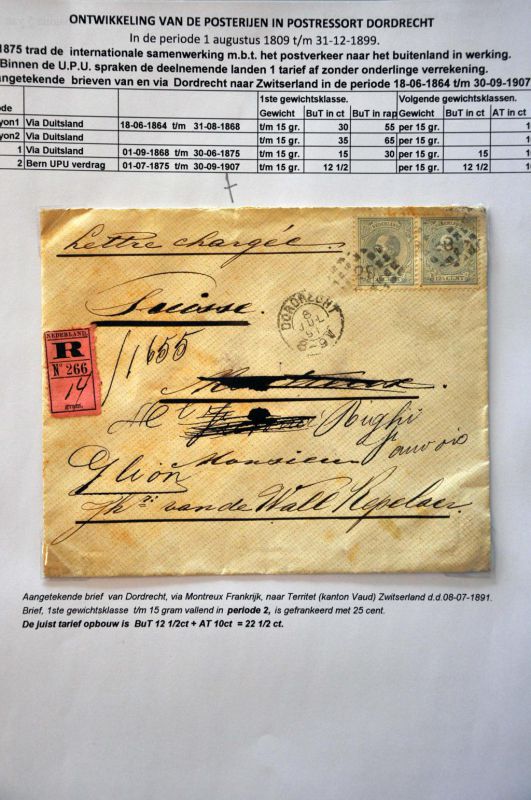 ONTWIKKELING VAN DE POSTERIJEN IN POSTRESSORT DORDRECHT
In de periode 1 augustus 1809 t/m 31-12-1899.
1875 trad de internationale samenwerking m.b.t. het postverkeer naar het buitenland in werking.
Binnen de U.P.U. spraken de deelnemende landen 1 tarief af zonder onderlinge verrekening.
angetekende brieven van en via Dordrecht naar Zwitserland in de periode 18-06-1864 t/m 30-09-1907
1ste gewichtsklasse. Volgende gewichtsklassen.
ode Gewicht BuT in ct BuT in rap Gewicht BuT in ct AT in ct
yon1 Via Duitsland 18-06-1864 t/m 31-08-1868 t/m 15 gr. 30 55 per 15 gr.
yon2 t/m 15 gr. 35 65 per 15 gr.
1 Via Duitsland 01-09-1868 t/m 30-06-1875 t/m 15 gr. 15 30 per 15 gr. 15
2 Bern UPU verdrag 01-07-1875 t/m 30-09-1907 t/m 15 gr. 12 1/2 per 15 gr. 12 1/2
Lettre chargée
NEDERLAND
Suisse.
DORDRECHT
8 JUL
NEDERLAND
R
No 266
14
1655
Righi
Glion
Monsieur
van de Wall Repelaer.
Aangetekende brief van Dordrecht, via Montreux Frankrijk, naar Territet (kanton Vaud) Zwitserland d.d.08-07-1891.
Brief, 1ste gewichtsklasse t/m 15 gram vallend in periode 2, is gefrankeerd met 25 cent.
De juist tarief opbouw is BuT 12 1/2ct + AT 10ct = 22 1/2 ct.